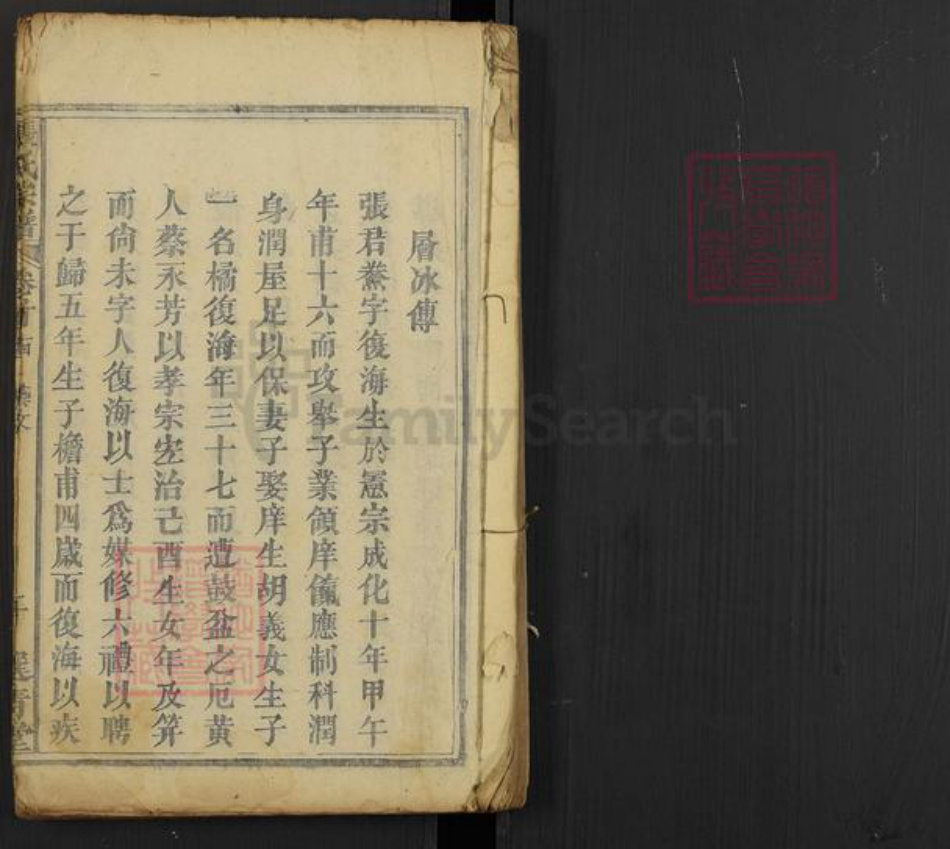 層冰傳
張君鰲字復海生於憲宗成化十年甲午
年甫十六而攻舉子業領庠餼應制科潤
身潤屋足以保妻子娶庠生胡義女生子
一名橘復海年三十七而遭鼓盆之厄黃
人蔡永芳以孝宗宏治己酉生女年及笄
而尚未字人復海以士為媒修六禮以聘
之于歸五年生子檐甫四歲而復海以疾
氏宗譜 卷首
FamilySearch